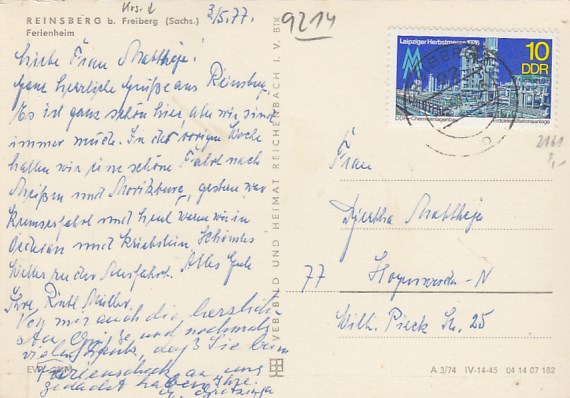 REINSBERG b. Freiberg (Sachs.)
Ferienheim
3/5.77.
9214
Liebe Frau Matthejs!
Ganz herzliche Grüße aus Reinsberg.
Es ist ganz schön hier, aber wir sind
immer müde. In der vorigen Woche
hatten wir eine schöne Fahrt nach
Meißen und Moritzburg, gestern war
und heut waren wir in
und Kriebstein. Schönstes
Wetter zu der Ausfahrt. Alles Gute
Ihre Müller.
Von mir auch die herzlich-
sten Grüße und nochmals
vielen Dank, daß Sie beim
Ferienscheck an uns
gedacht haben. Ihre
VERLAG BILD UND HEIMAT REICHENBACH I. V.
Leipziger Herbstmesse 1976
10
DDR
2161
Frau
Matthejs
77 Hoyerswerda-N
Wilh. Pieck Str. 25
A 3/74 IV-14-45 04 14 07 182